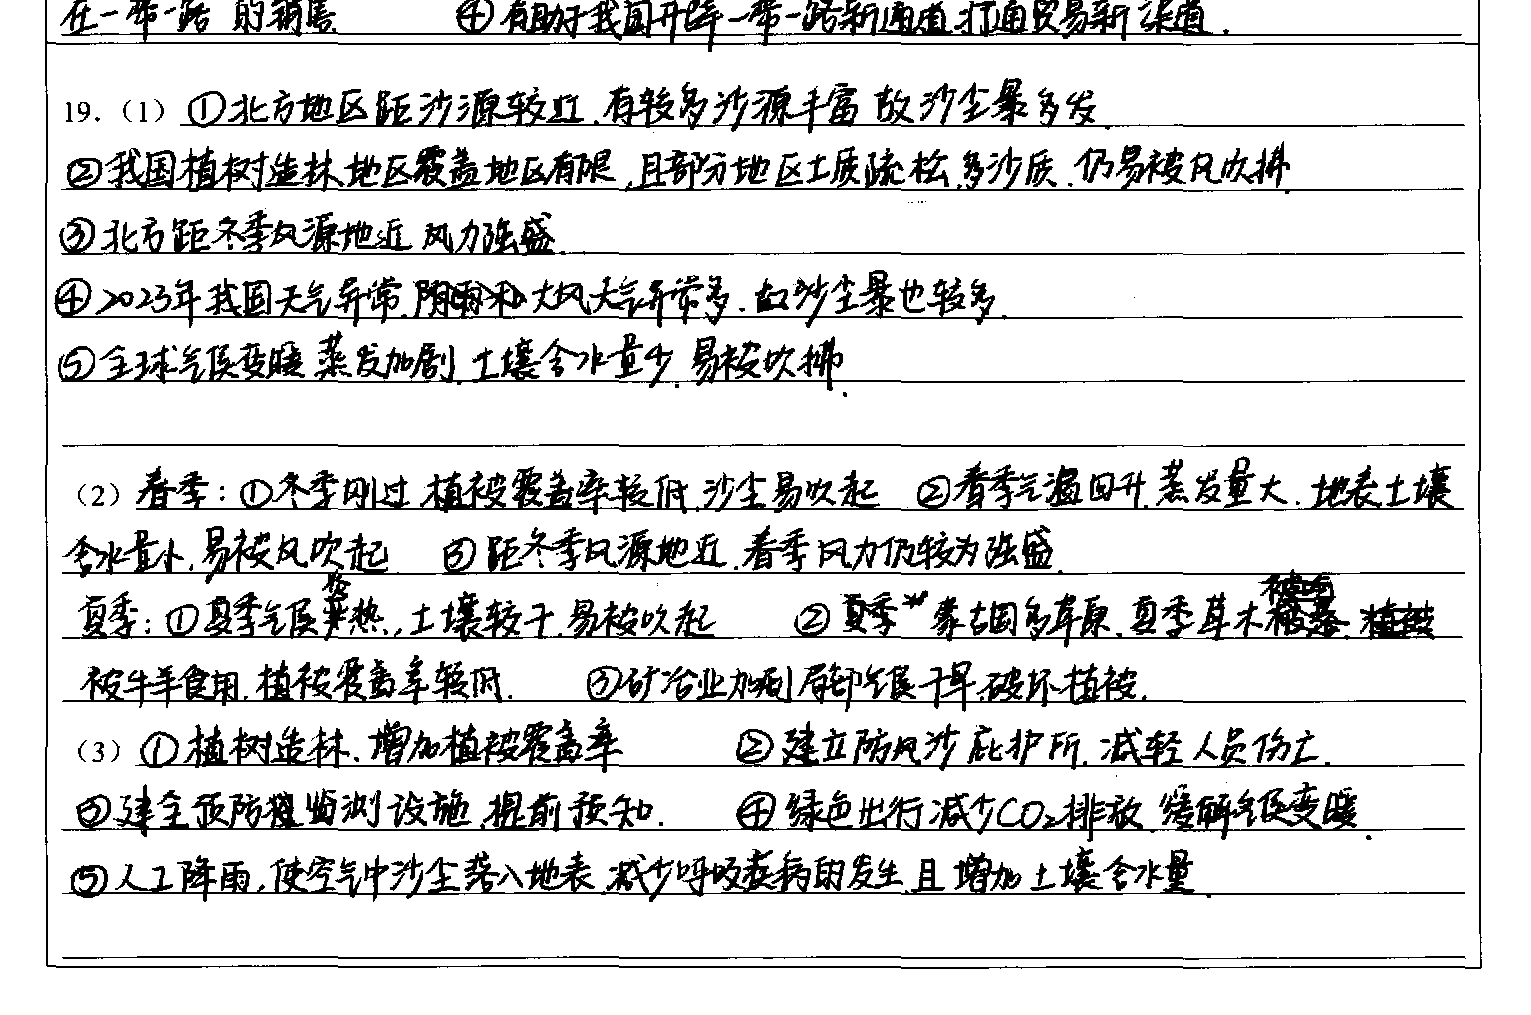 在一带一路 的销售. ④有助于我国开辟一带一路新通道,打通贸易新渠道.
19.(1)①北方地区距沙源较近,有较多沙源丰富 故沙尘暴多发.
②我国植树造林地区覆盖地区有限,且部分地区土质疏松,多沙质,仍易被风吹拂.
③北方距冬季风源地近 风力强盛.
④2023年我国天气异常,大风天气异常多,故沙尘暴也较多.
⑤全球气候变暖 蒸发加剧,土壤含水量少,易被吹拂.
(2)春季:①冬季刚过 植被覆盖率较低,沙尘易吹起 ②春季气温回升,蒸发量大,地表土壤
含水量小,易被风吹起 ③距冬季风源地近,春季风力仍较为强盛.
夏季:①夏季气候炎热,土壤较干,易被吹起 ②夏季蒙古国多草原,夏季草木
被牛羊食用,植被覆盖率较低. ③矿冶业加剧局部气候干旱,破坏植被.
(3)①植树造林,增加植被覆盖率 ②建立防风沙庇护所,减轻人员伤亡.
③建全预防监测设施,提前预知. ④绿色出行减少CO₂排放,缓解气候变暖.
⑤人工降雨,使空气中沙尘落入地表,减少呼吸疾病的发生,且增加土壤含水量.